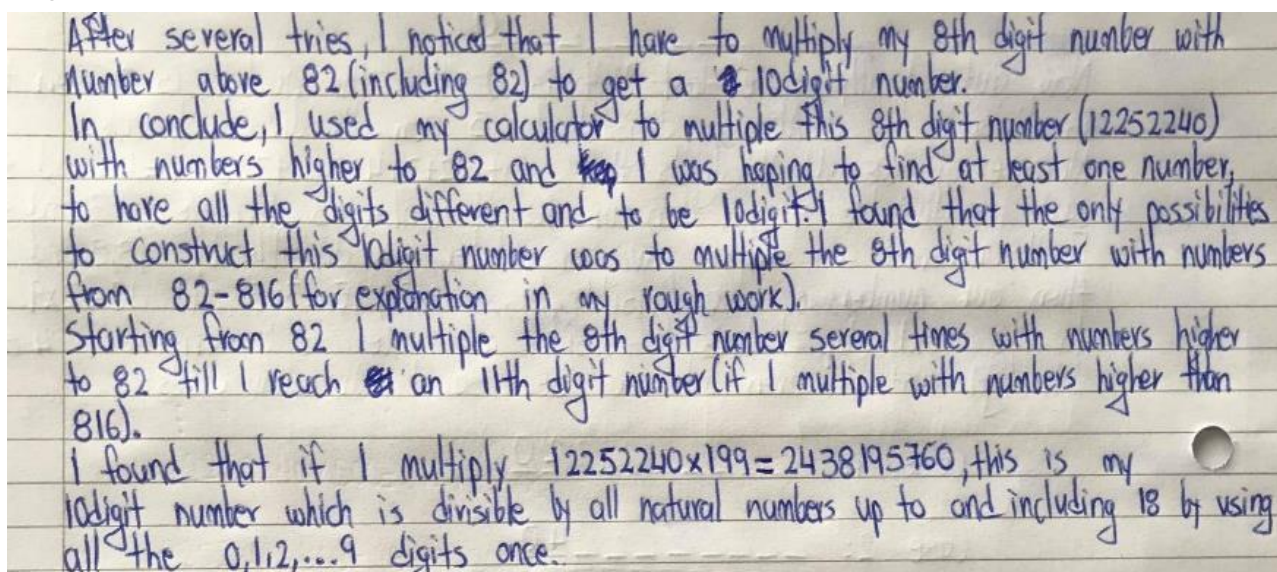 After several tries, I noticed that I have to multiply my 8th digit number with
number above 82 (including 82) to get a 10digit number.
In conclude, I used my calculator to multiple this 8th digit number (12252240)
with numbers higher to 82 and I was hoping to find at least one number,
to have all the digits different and to be 10digit. I found that the only possibilities
to construct this 10digit number was to multiple the 8th digit number with numbers
from 82-816 (for explanation in my rough work).
Starting from 82 I multiple the 8th digit number several times with numbers higher
to 82 till I reach an 11th digit number (if I multiple with numbers higher than
816).
I found that if I multiply 12252240×199=2438195760, this is my
10digit number which is divisible by all natural numbers up to and including 18 by using
all the 0,1,2,...9 digits once.